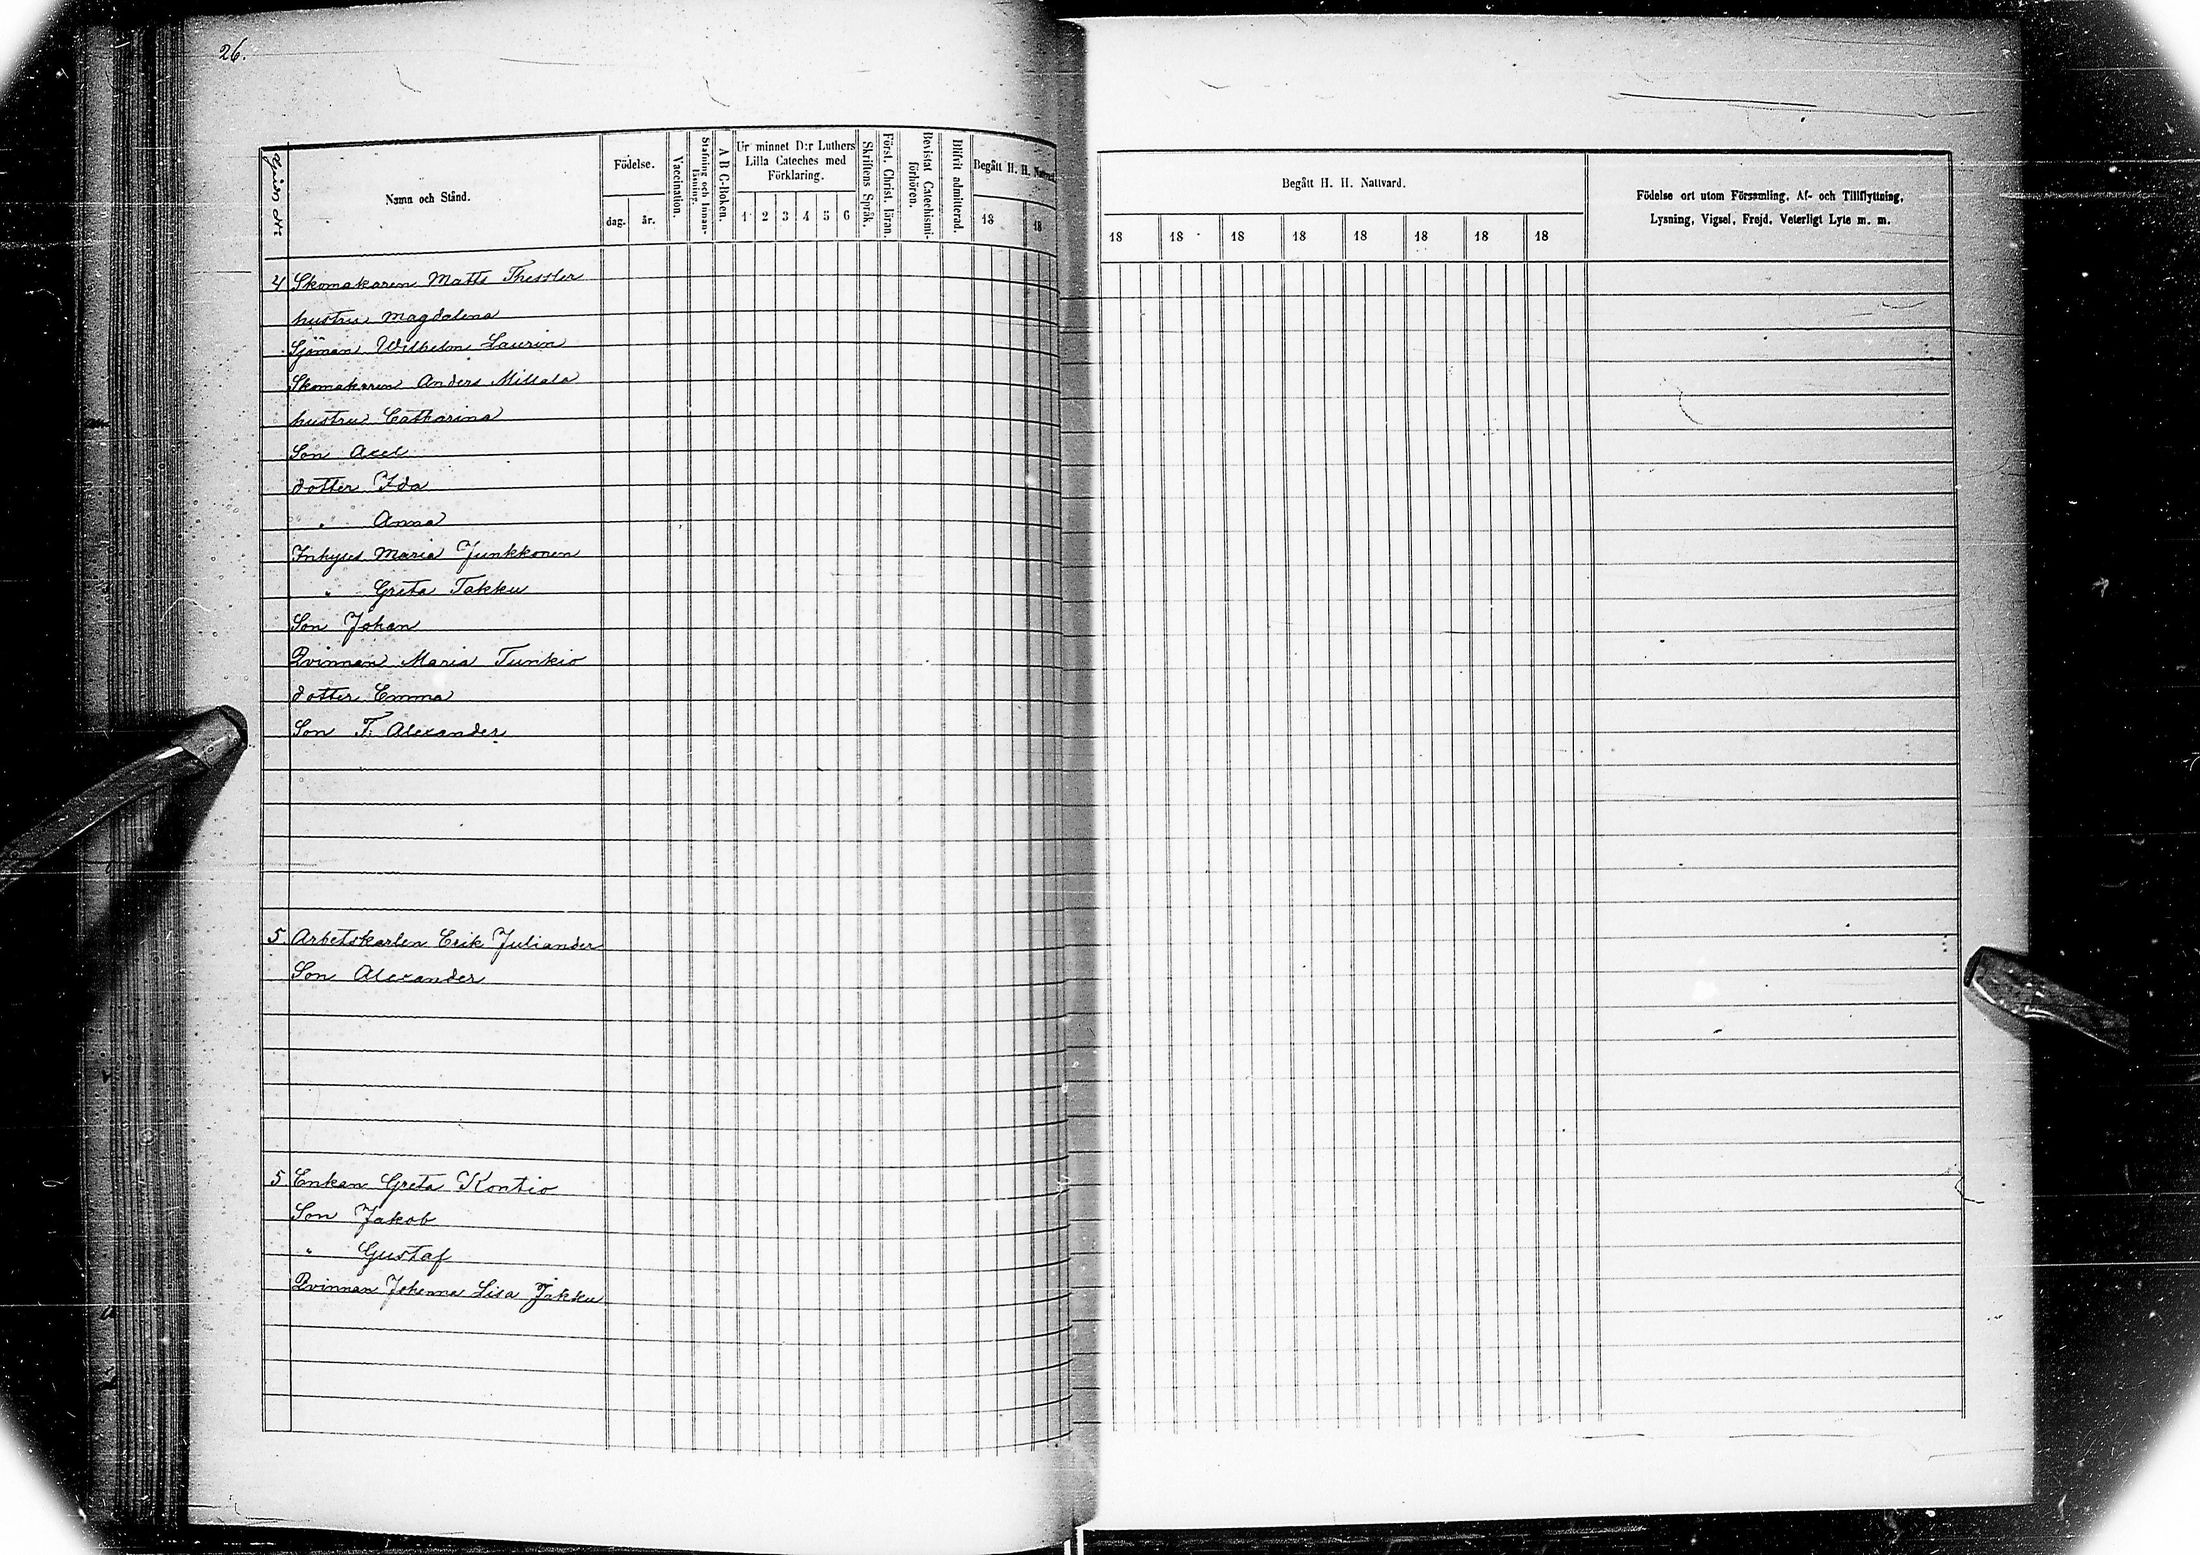 26.
Gård N:
Namn och Stånd.
Födelse.
dag.
år.
Vaccination.
Stafning och Innan-
läsning.
A B C-Boken.
Ur minnet D:r Luthers
Lilla Cateches med
Förklaring.
1 2 3 4 5 6
Skriftens Språk.
Förstr. Christ. läran.
Bevistat Catechismi-
förhören.
Blifvit admitterad.
Begått H. H. Nattvard.
18 18
Begått H. H. Nattvard.
18 18 18 18 18 18 18 18
Födelse ort utom Församling, Af- och Tillflyttning,
Lysning, Vigsel, Frejd, Veterligt Lyte m. m.
4 Skomakaren Matts Thessler
hustru Magdalena
Sjöman Wilhelm Laurin
Skomakaren Anders Millala
hustru Catharina
Son Axel
dotter Ida
" Anna
Inhyses Maria Junkkonen
" Greta Takku
Son Johan
Qvinnan Maria Tunkio
dotter Emma
Son F. Alexander
5 Arbetskarlen Erik Juliander
Son Alexander
5 Enkan Greta Kontio
Son Jakob
" Gustaf
Qvinnan Johanna Lisa Jakku